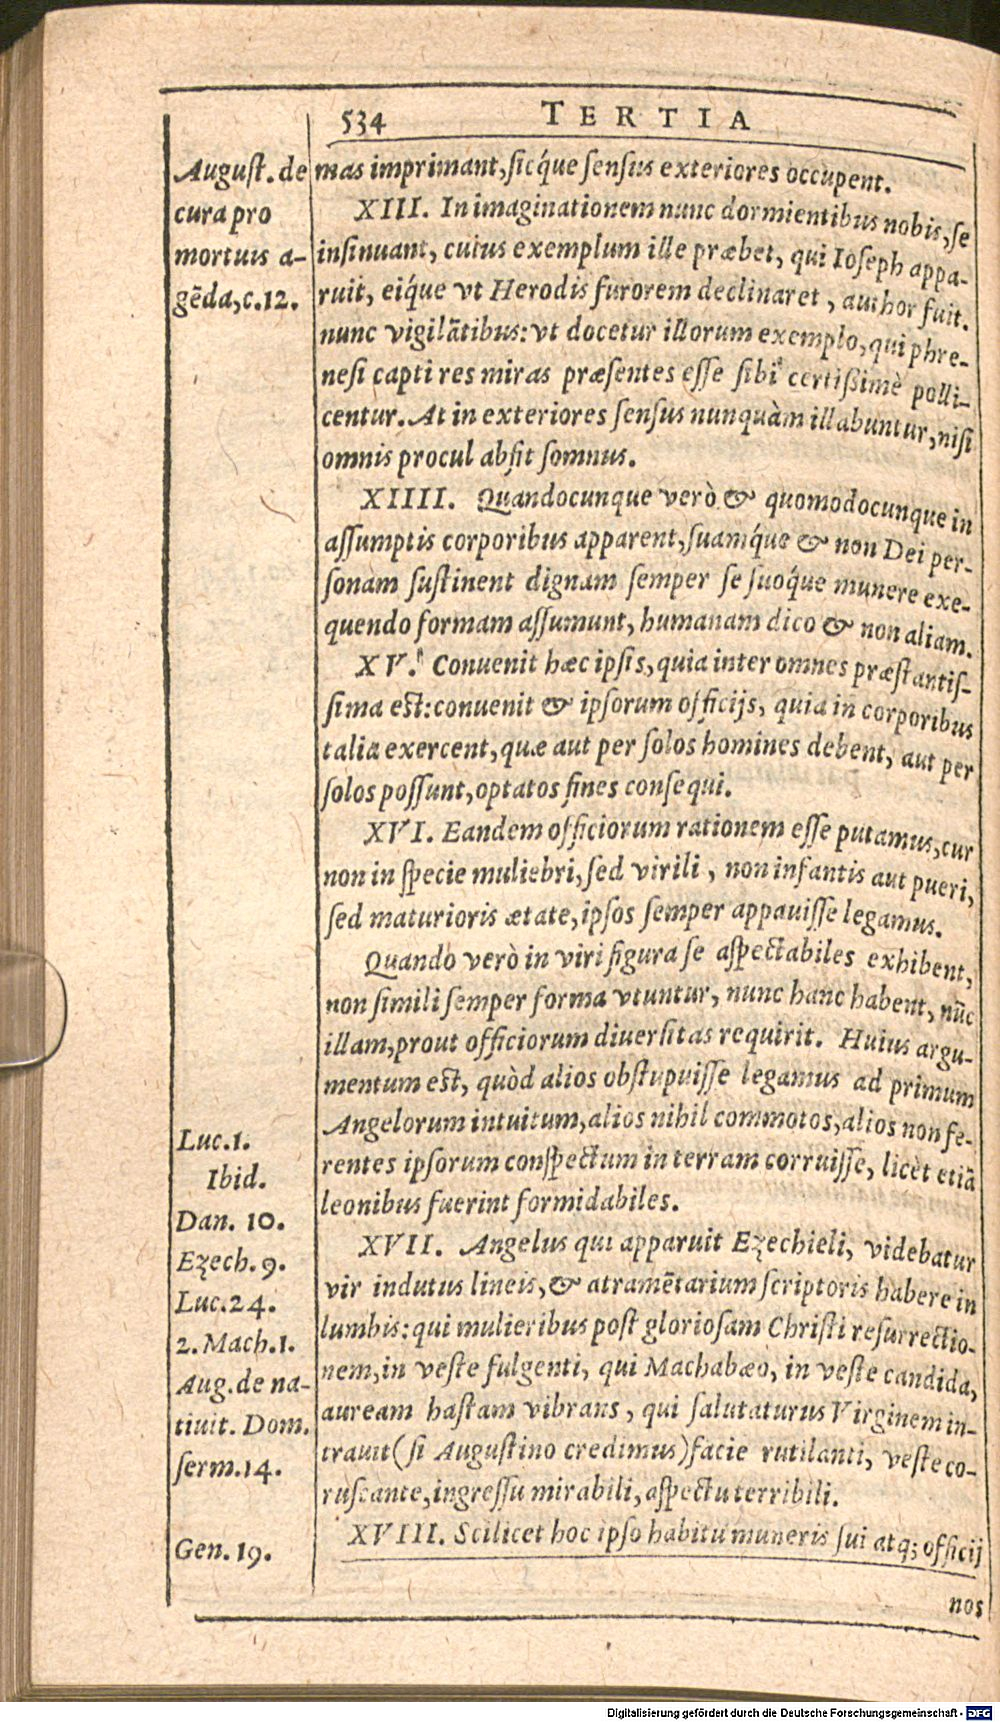 534 TERTIA
August. de
cura pro
mortuis a-
gēda, c. 12.
mas imprimant, sicq́ue sensus exteriores occupent.
XIII. In imaginationem nunc dormientibus nobis, se
insinuant, cuius exemplum ille præbet, qui Ioseph appa-
ruit, eiq́ue vt Herodis furorem declinaret, author fuit.
nunc vigilātibus: vt docetur illorum exemplo, qui phre-
nesi capti res miras præsentes esse sibi certißimè polli-
centur. At in exteriores sensus nunquàm illabuntur, nisi
omnis procul absit somnus.
XIIII. Quandocunque verò & quomodocunque in
assumptis corporibus apparent, suamq́ue & non Dei per-
sonam sustinent dignam semper se suoq́ue munere exe-
quendo formam assumunt, humanam dico & non aliam.
XV. Conuenit hæc ipsis, quia inter omnes præstantis-
sima est: conuenit & ipsorum officijs, quia in corporibus
talia exercent, quæ aut per solos homines debent, aut per
solos possunt, optatos fines consequi.
XVI. Eandem officiorum rationem esse putamus, cur
non in specie muliebri, sed virili, non infantis aut pueri,
sed maturioris ætate, ipsos semper appauisse legamus.
Quando verò in viri figura se aspectabiles exhibent,
non simili semper forma vtuntur, nunc hanc habent, nūc
illam, prout officiorum diuersitas requirit. Huius argu-
mentum est, quòd alios obstupuisse legamus ad primum
Angelorum intuitum, alios nihil commotos, alios non fe-
rentes ipsorum conspectum in terram corruisse, licèt etiā
leonibus fuerint formidabiles.
Luc. 1.
Ibid.
Dan. 10.
Ezech. 9.
Luc. 24.
2. Mach. 1.
Aug. de na-
tiuit. Dom.
serm. 14.
Gen. 19.
XVII. Angelus qui apparuit Ezechieli, videbatur
vir indutus lineis, & atramētarium scriptoris habere in
lumbis: qui mulieribus post gloriosam Christi resurrectio-
nem, in veste fulgenti, qui Machabæo, in veste candida,
auream hastam vibrans, qui salutaturus Virginem in-
trauit (si Augustino credimus) facie rutilanti, veste co-
ruscante, ingressu mirabili, aspectu terribili.
XVIII. Scilicet hoc ipso habitu muneris sui atq; officij
nos
Digitalisierung gefördert durch die Deutsche Forschungsgemeinschaft - DFG